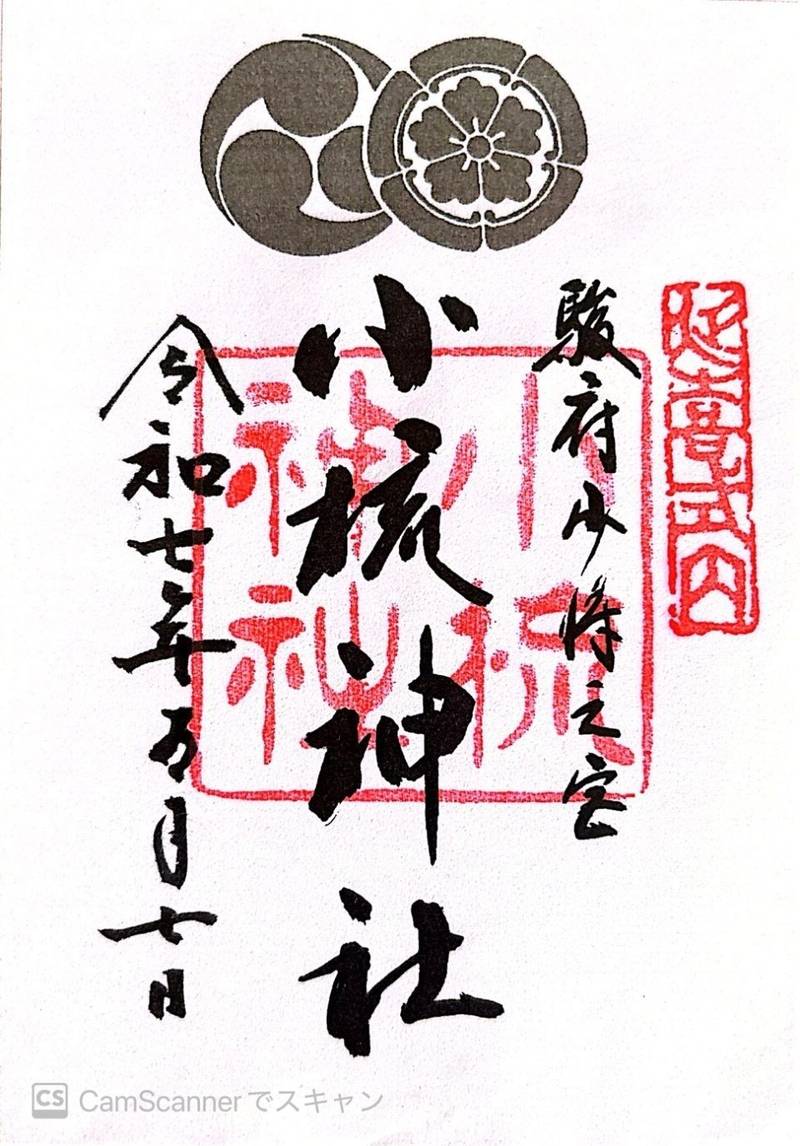 延喜式内
駿府少将之宮
小梳神社
小梳神社
令和七年五月七日
CS CamScannerでスキャン